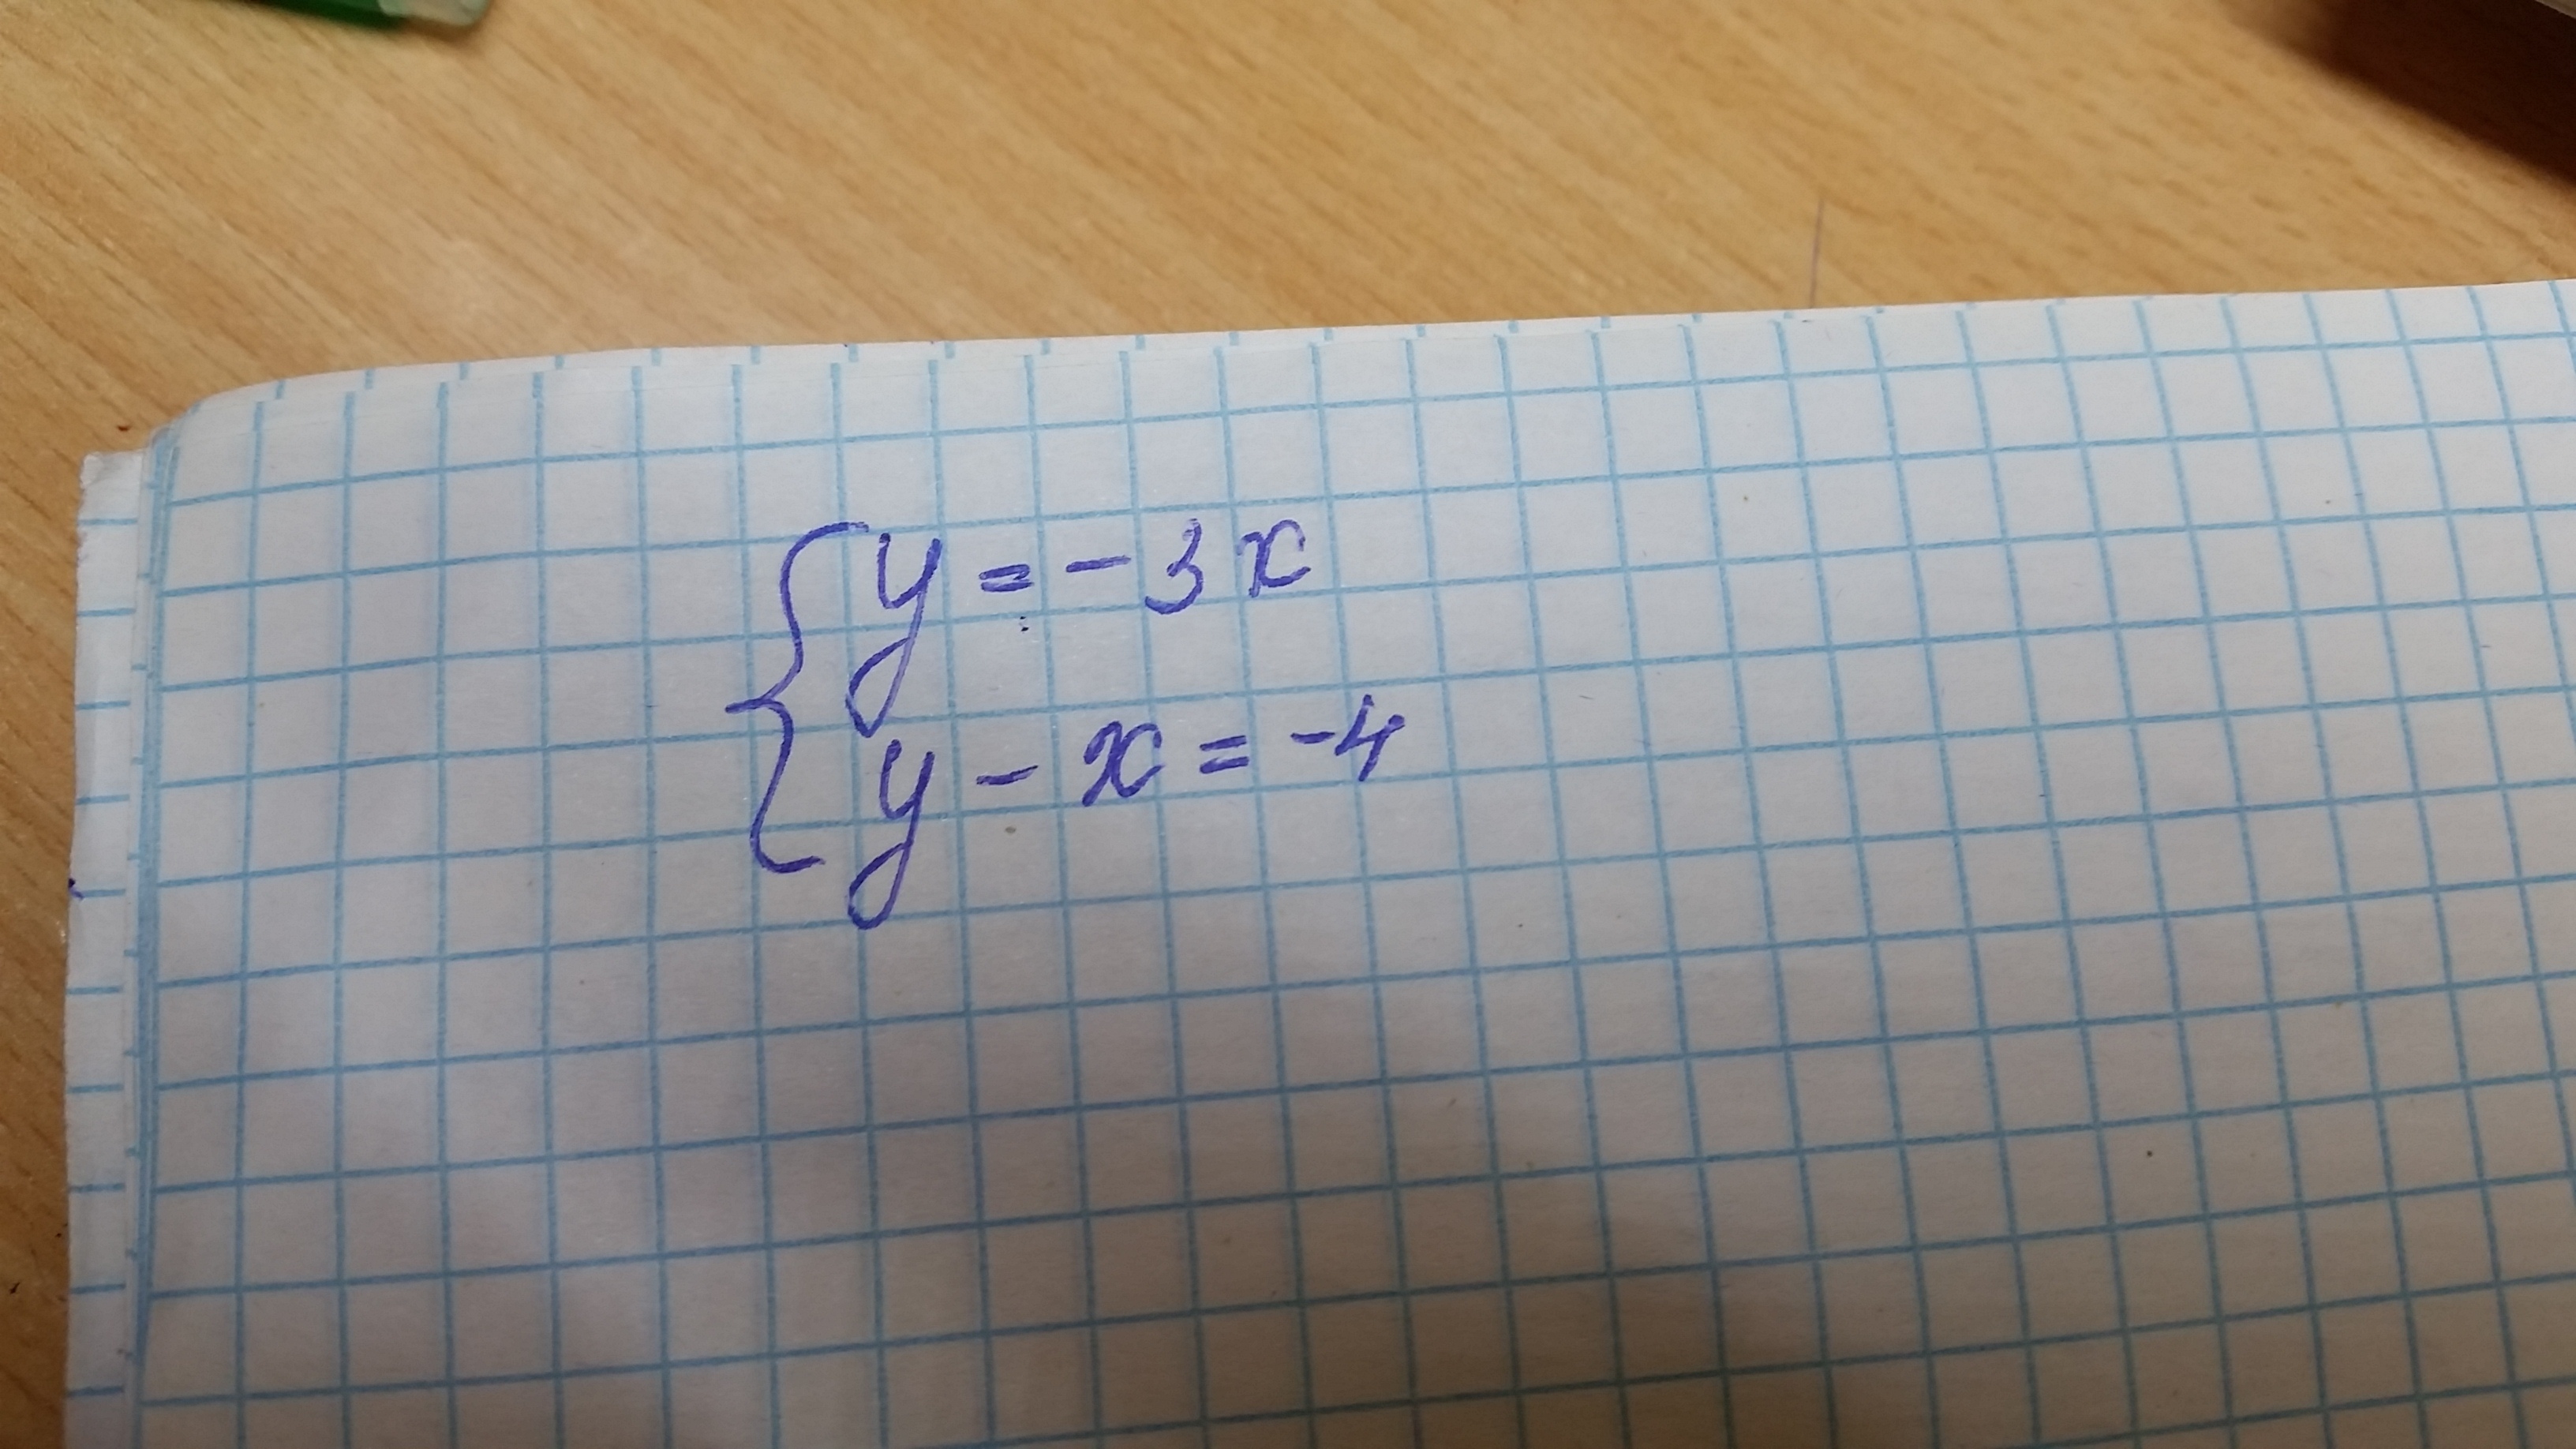 y = - 3x
y - x = -4